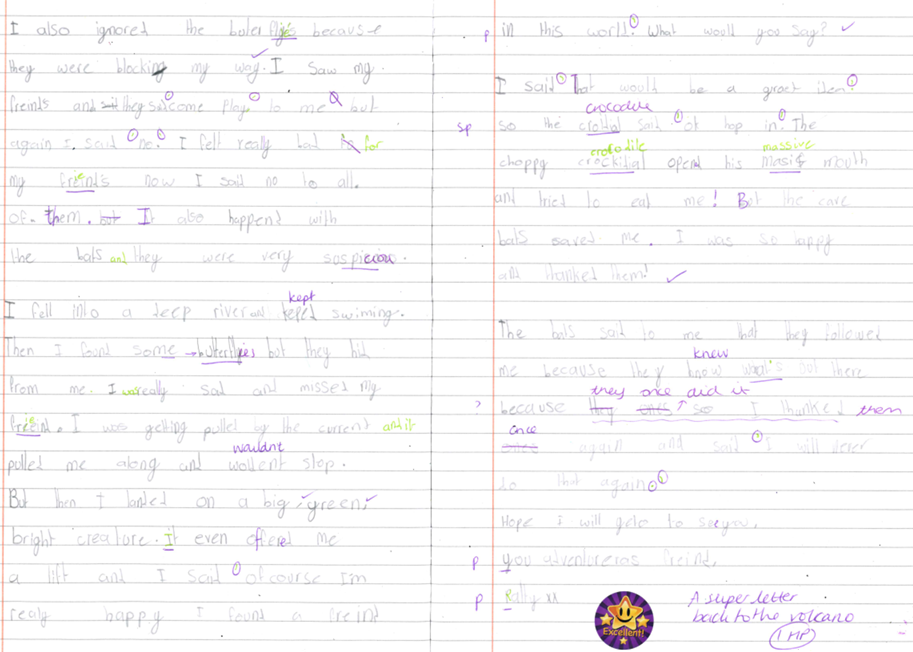 I also ignored the buterflyies because
they were blocking my way. I saw my
freinds and they said come play to me but
again I said one. I felt really bad for
my freinds now I said no to all.
of them. but It also happend with
the bats and they were very suspicious.
I fell into a deep river and kept swiming.
Then I found some → butterflies but they hid
from me. I was really sad and missed my
freind. I was getting pulled by the current and it
pulled me along and wouldnt stop.
But then I landed on a big, green,
bright creature. It even offered me
a lift and I said of course I'm
realy happy I found a freind
p in this world! What would you say? ✓
I said That would be a great idea!
crocodile
so the said ok hop in. The
sp
crocodile massive
choppy crockidial opend his masif mouth
and tried to eat me! But the care
bats saved me. I was so happy
and thanked them! ✓
The bats said to me that they followed
knew
me because they know what's out there
they once did it
? because they once so I thanked them
once
again and said I will never
do that again.
Hope i will geto to see you,
p you adventureros freind,
p Rally xx
Excellent!
A super letter
back to the volcano
1 HP